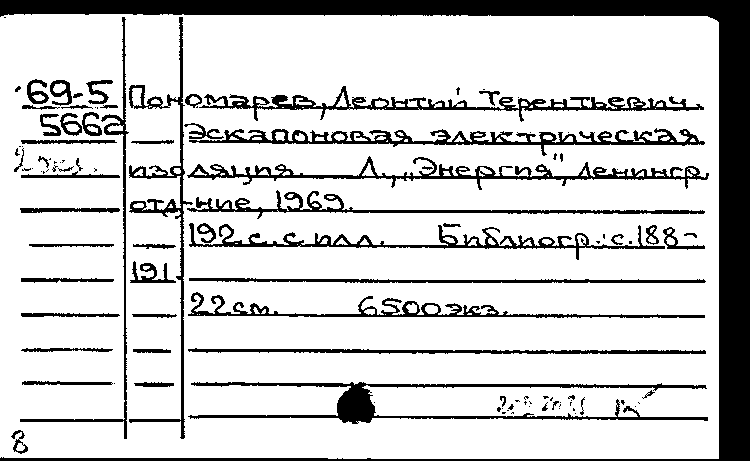 69-5 Пономарев, Леонтий Терентьевич.
5662 Эскапоновая электрическая
2 экз. изоляция. Л., „Энергия", Ленингр.
отд-ние, 1969.
192 с. с илл. Библиогр.: с. 188-
191.
22 см. 6500 экз.
8